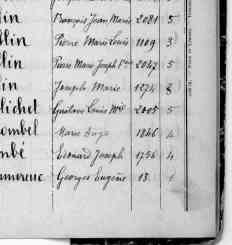 lin François Jean Marie 2081 5
llin Pierre Marie Louis 1109 3
llin Pierre Marie Joseph 2047 5
lin Joseph Marie 1274 8
lichet Gustave Louis 2005 5
ombel Marie Ange 1846 4
mbé Edouard Joseph 1756 4
Georges Eugène 13. 1